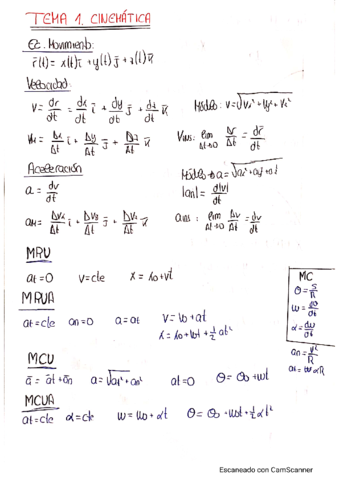 TEMA 1. CINEMÁTICA
Ec. Movimiento:
r̄(t) = x(t) ī + y(t) j̄ + z(t) k̄
Velocidad:
v = dr/dt = dx/dt ī + dy/dt j̄ + dz/dt k̄
Módulo: v = √vx² + vy² + vz²
vM = Δx/Δt ī + Δy/Δt j̄ + Δz/Δt k̄
vins: lim Δt→0 Δr/Δt = dr̄/dt
Aceleración
a = dv/dt
Módulo → a = √ax² + ay² + az²
|at| = d|v|/dt
aM = ΔVx/Δt ī + ΔVy/Δt j̄ + ΔVz/Δt k̄
ains: lim Δt→0 Δv/Δt = dv/dt
MRU
at = 0 v = cte x = x₀ + vt
MRUA
at = cte an = 0 a = at v = v₀ + at
x = x₀ + v₀t + ½ at²
MC
θ = s/R
ω = dθ/dt
α = dω/dt
an = v²/R
at = αR
MCU
ā = āt + ān a = √at² + an² at = 0 θ = θ₀ + ωt
MCUA
at = cte α = cte ω = ω₀ + αt θ = θ₀ + ω₀t + ½ αt²
Escaneado con CamScanner